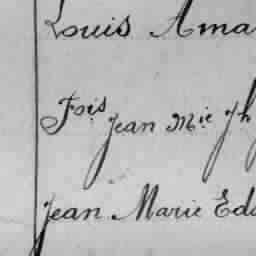 Louis Ama
Fois Jean Mie Jh
Jean Marie Edo